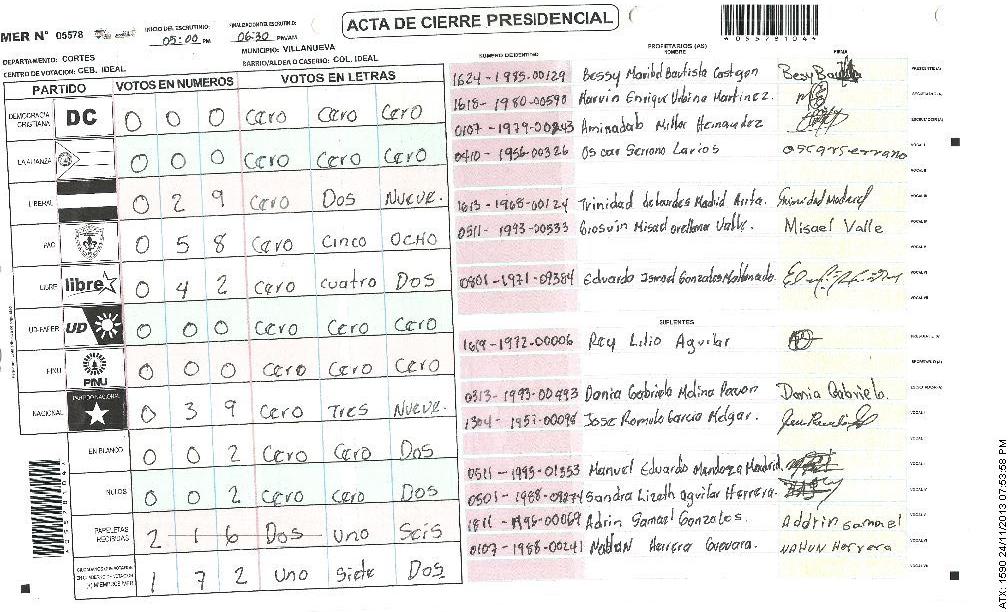 ACTA DE CIERRE PRESIDENCIAL
MER N° 05578
INICIO DEL ESCRUTINIO: 05:00 PM
FINALIZACION DEL ESCRUTINIO: 06:30 PM
DEPARTAMENTO: CORTES
MUNICIPIO: VILLANUEVA
CENTRO DE VOTACION: CEB. IDEAL
BARRIO/ALDEA O CASERIO: COL. IDEAL
PARTIDO VOTOS EN NUMEROS VOTOS EN LETRAS
DEMOCRACIA CRISTIANA DC 0 0 0 Cero Cero Cero
LA ALIANZA 0 0 0 Cero Cero Cero
LIBERAL 0 2 9 Cero Dos Nueve.
PAC 0 5 8 Cero Cinco OCHO
LIBRE libre 0 4 2 Cero cuatro Dos
UD-FAPER UD 0 0 0 Cero Cero Cero
PINU PINU 0 0 0 Cero Cero Cero
NACIONAL PARTIDO NACIONAL 0 3 9 Cero Tres Nueve.
EN BLANCO 0 0 2 Cero Cero Dos
NULOS 0 0 2 Cero Cero Dos
PAPELETAS RECIBIDAS 2 1 6 Dos uno Seis
1 7 2 uno Siete Dos
NUMERO DE IDENTIDAD PROPIETARIOS (AS) NOMBRE FIRMA
1624-1985-00129 Bessy Maribel Bautista Castejon
1618-1980-00590 Marvin Enrique Urbina Martinez.
0107-1979-00243 Aminadab Miller Hernandez
0410-1956-00326 Oscar Serrano Larios oscar serrano
1613-1968-00124 Trinidad de Lourdes Madrid
0511-1993-00533 Misael Orellana Valle. Misael Valle
0801-1971-09384 Eduardo Ismael Gonzales Maldonado
SUPLENTES
1619-1972-00006 Rey Lilio Aguilar
0313-1993-00493 Dania Gabriela Molina Pavon Dania Gabriela
1304-1957-00098 Jose Romulo Garcia Melgar.
0511-1995-01353 Manuel Eduardo Mendoza Madrid
0501-1988-09274 Sandra Lizeth aguilar Herrera.
Adrin Samael Gonzales. Addrin Samael
0107-1988-00241 Nahun Herrera Guevara. NAHUN Herrera
4055781044
ATX: 1590 24/11/2013 07:53:58 PM